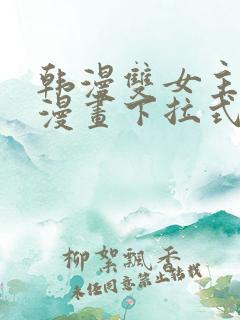 韩漫雙女主
漫畫下拉式
柳絮飄香
未经同意禁止转载